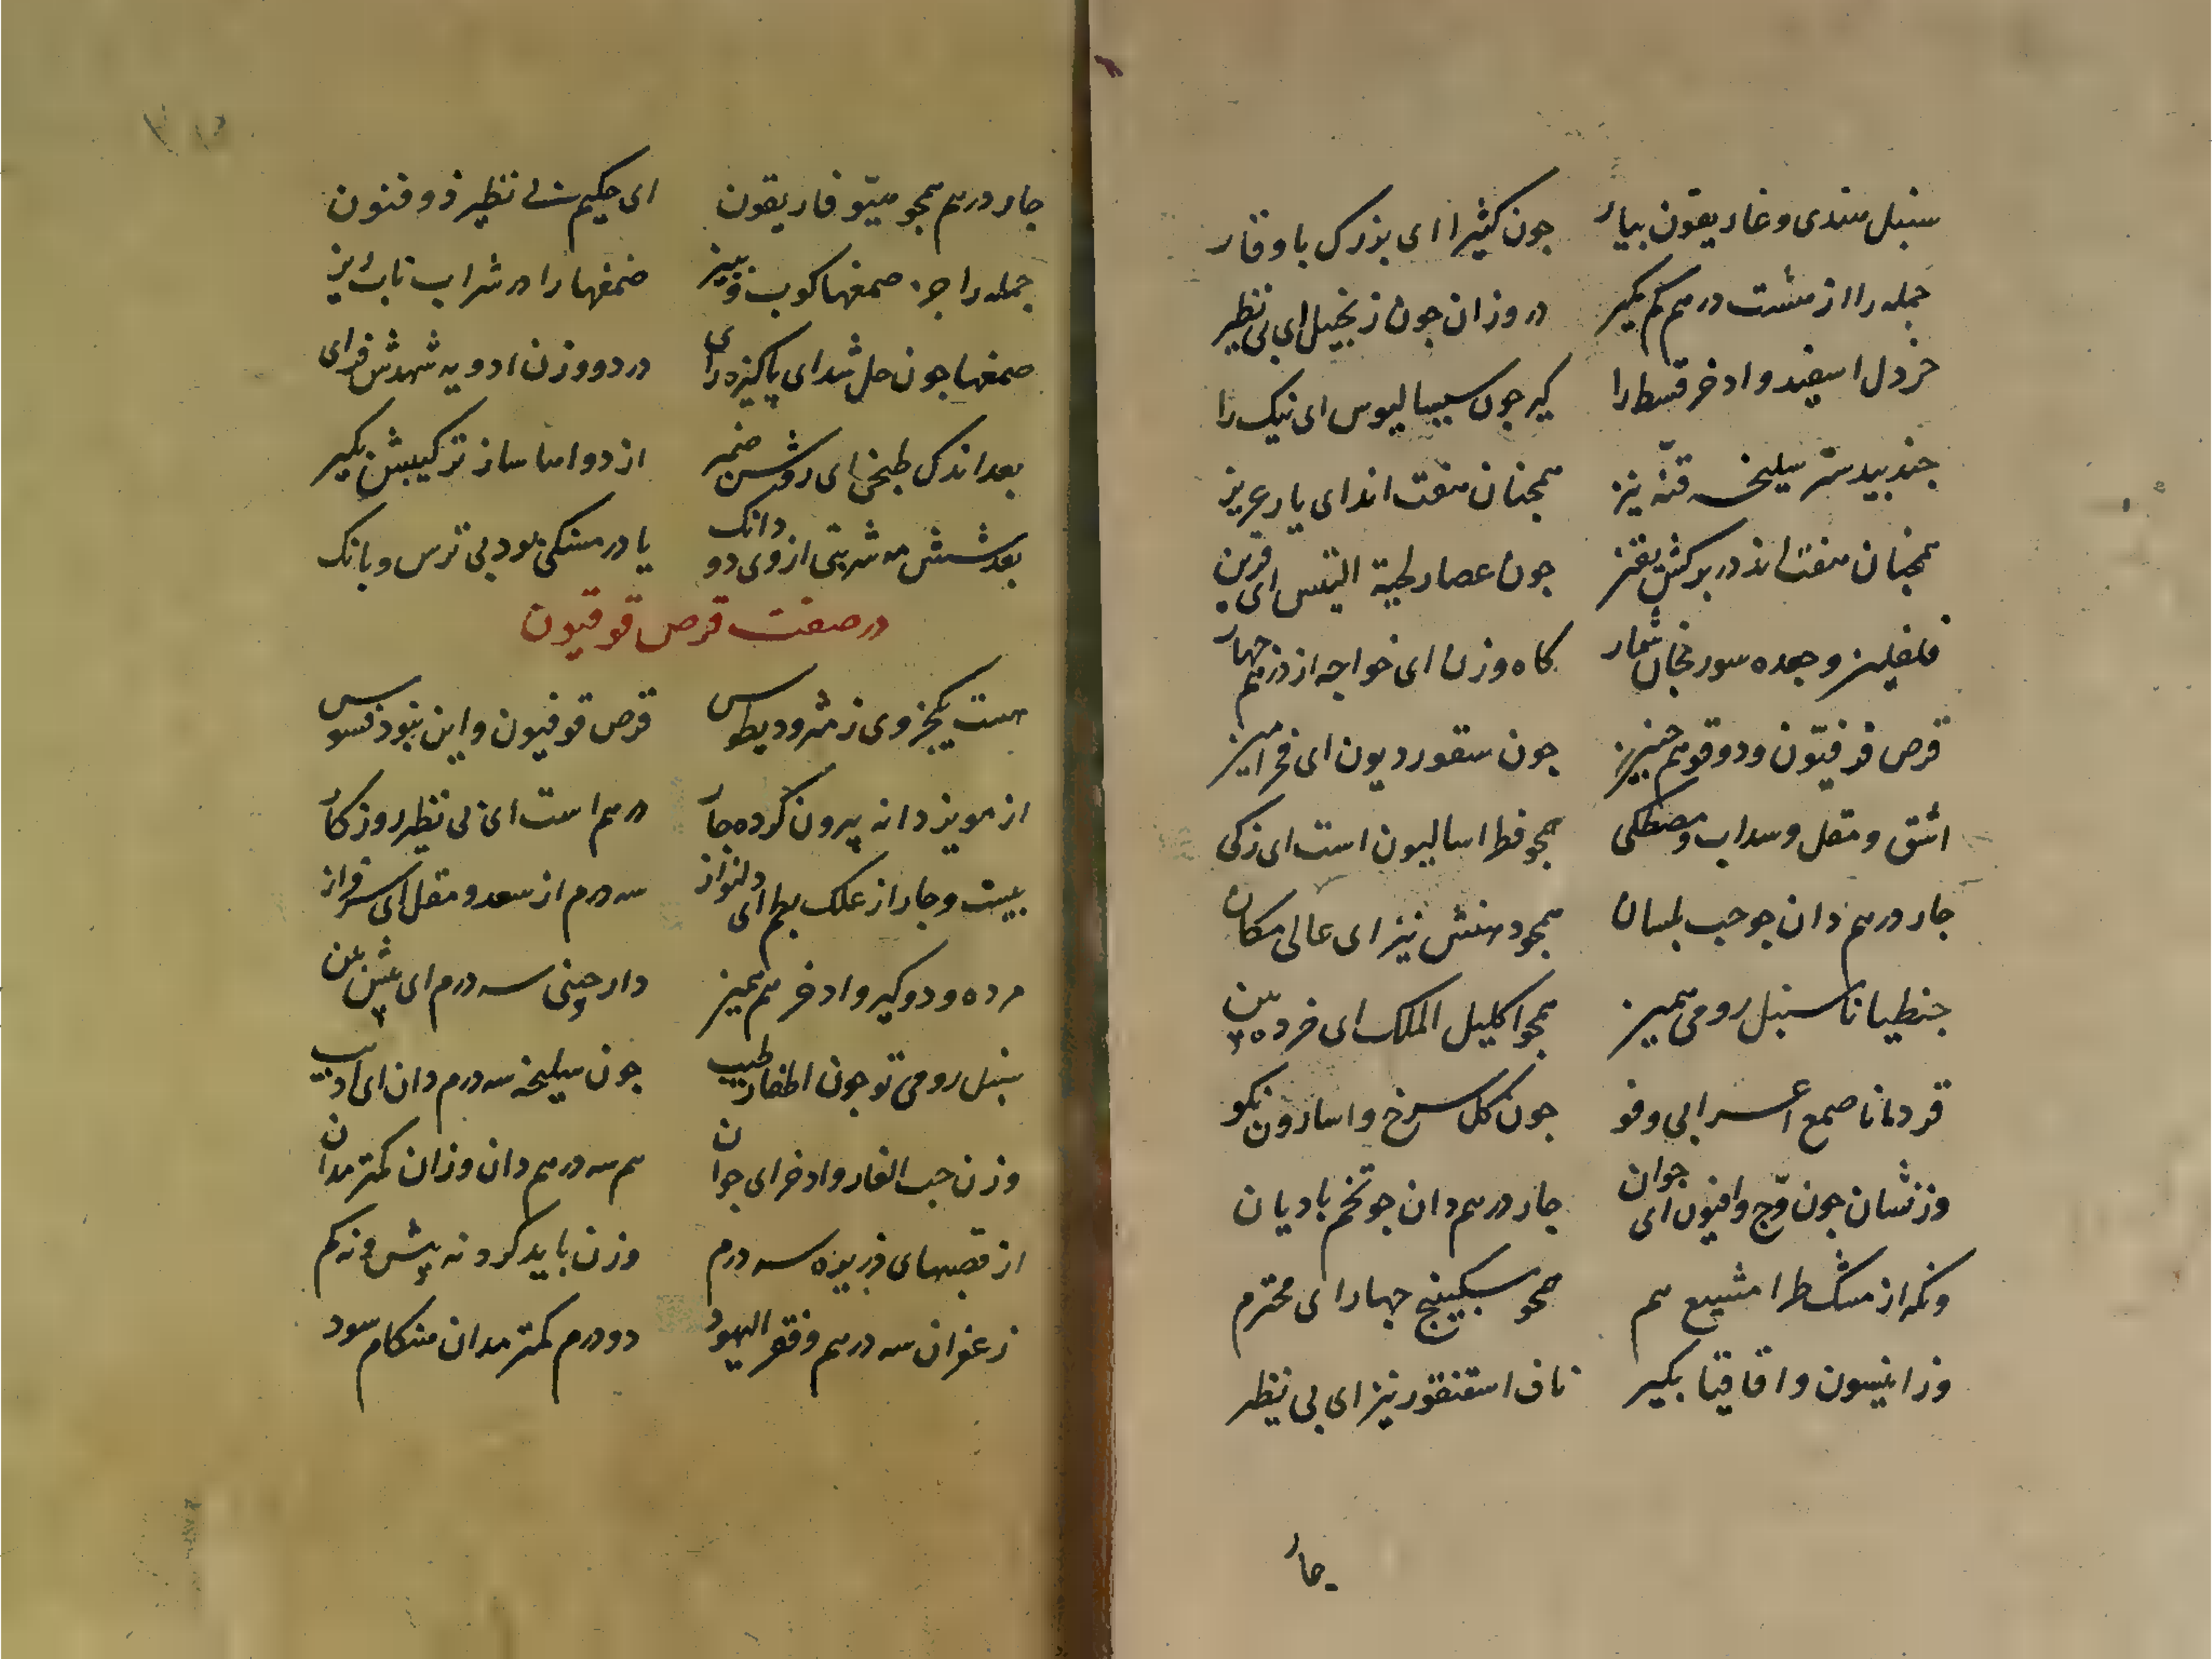 سنبل هندی و غاریقون بیار جون کثیرا ای بزرک باوقار
جمله را از هشت درهم کم مکیر در وزان جون زنجبیل ای بی نظیر
خردل اسفید و اذخر قسط را کیر جون سیسالیوس ای نیک را
جندبیدستر سلیخه قنه نیز همجنان هفت اند ای یار عزیز
همجنان هفت اند در برکش بقنز جون عصار لحیة التیس ای قرین
فلفلین و جعده سورنجان شمار کاه وزن ای خواجه از درهم جهار
قرص قوفیون و دوقو هم جون سقوردیون ای
اشق و مقل و سداب و مصطکی همجو فطراسالیون است ای زکی
جار درهم دان جو حب بلسان همجو دهنش نیز ای عالی مکان
جنطیانا سنبل رومی ممیز همجو اکلیل الملک ای
قردمانا صمع اعرابی و فو جون کل سرخ و اسارون نکو
وزنشان جون وج و افیون ای جوان جار درهم دان جو تخم بادیان
ونکه از مشک طرا مشیع هم همجو سکبینج جهار ای محترم
وز انیسون و اقاقیا بکیر ناف اسقنقور نیز ای بی نظیر
جار
جار درهم همجو میتو فاریقون ای حکیم بی نظیر ذوفنون
جمله را جز صمغها کوب و ببیز صمغها را در شراب ناب ریز
صمغها جون حل شد ای پاکیزه رای در دو وزن ادویه شهدش فزای
بعد اندک طبخی ای روشن ضمیر از دواها ساز ترکیبش بکیر
بعد شش مه شربتی از وی دو دانک یا درمسنکی بود بی ترس و بانک
در صفت قرص قوقیون
هست یکجزوی ز مثرودیطوس قرص قوفیون و این نبود فسوس
از مویز دانه پیرون کرده جار درهم است ای بی نظیر روزکار
بیست و جار از علک بطم ای دلنواز سه درم از سعد و مقل ای سرفراز
مر ده و دو کیر و اذخر هم ممیز دارچینی سه درم ای
سنبل رومی تو جون اظفار طیب جون سلیخه سه درم دان ای ادیب
وزن حب الغار و اذخر ای جوان هم سه درهم دان وزان کمتر مدان
از قصبهای ذریره سه درم وزن باید کرد نه پیش و نه کم
زعفران سه درهم و فقر الیهود دو درم کمتر مدان هنکام سود